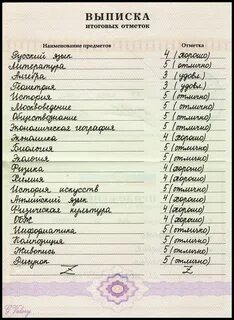 ВЫПИСКА
ИТОГОВЫХ ОТМЕТОК
Наименование предметов Отметка
Русский язык 4 (хорошо)
Литература 5 (отлично)
Алгебра 3 (удовл.)
Геометрия 3 (удовл.)
История 5 (отлично)
Москвоведение 5 (отлично)
Обществознание 5 (отлично)
Экономическая география 5 (отлично)
Экономика 4 (хорошо)
Биология 5 (отлично)
Экология 5 (отлично)
Физика 4 (хорошо)
Химия 4 (хорошо)
История искусств 5 (отлично)
Английский язык 4 (хорошо)
Физическая культура 4 (хорошо)
ОБЖ 4 (хорошо)
Информатика 5 (отлично)
Композиция 5 (отлично)
Живопись 5 (отлично)
Рисунок 5 (отлично)
Z Z